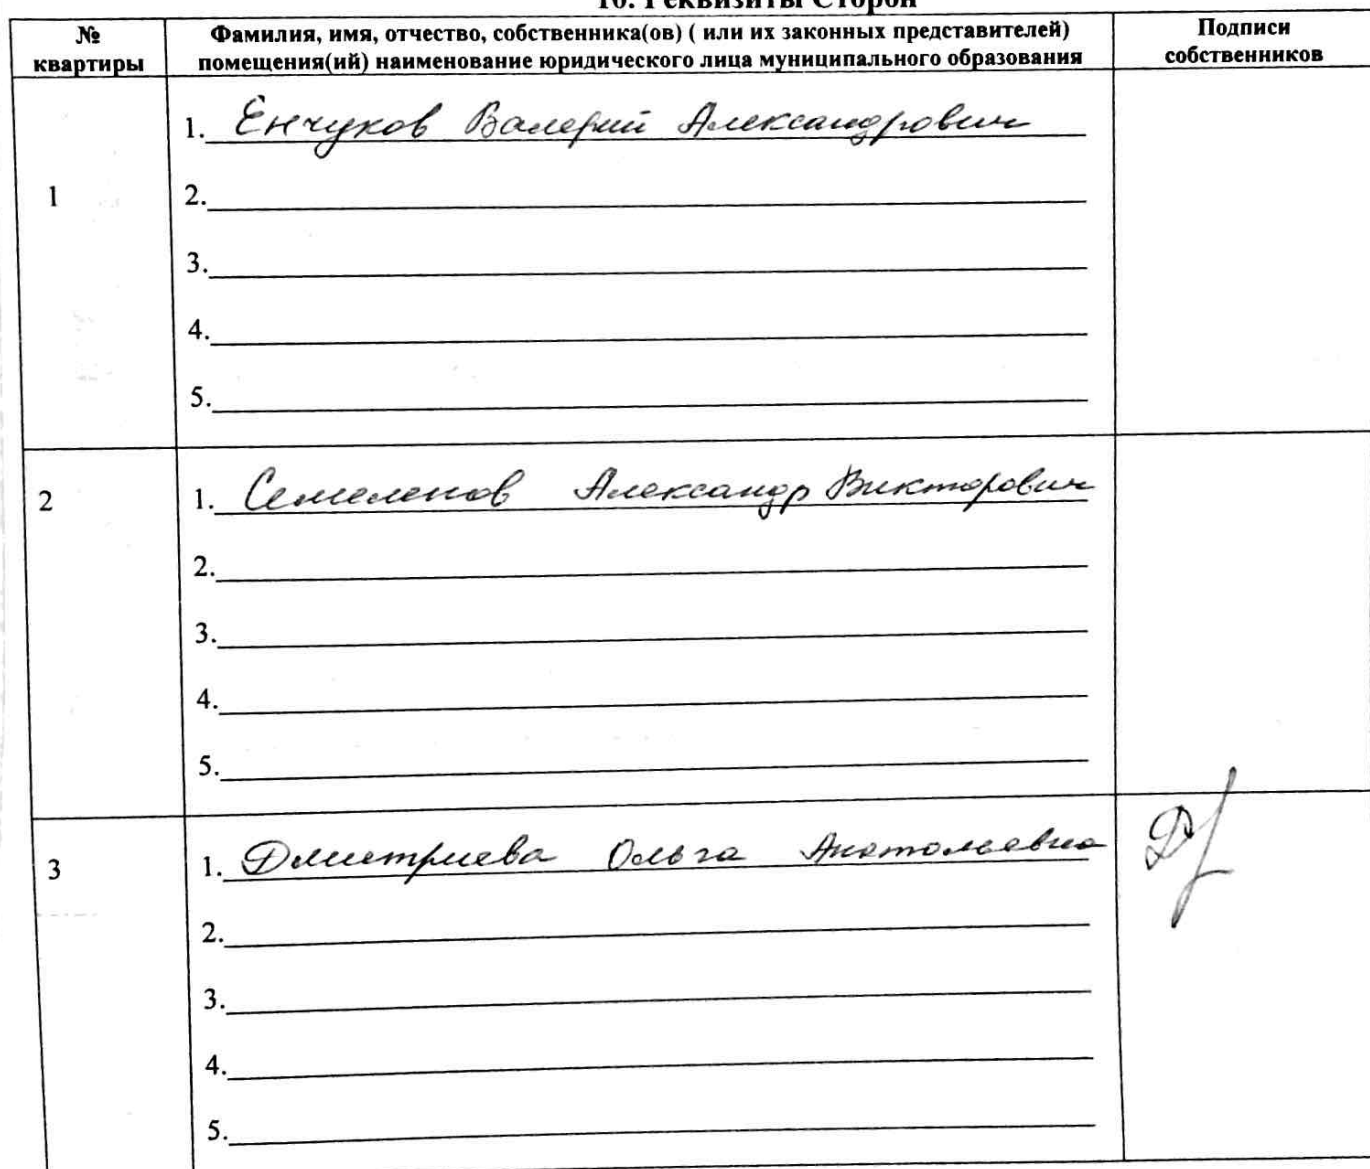 10. Реквизиты Сторон
№ квартиры
Фамилия, имя, отчество, собственника(ов) ( или их законных представителей) помещения(ий) наименование юридического лица муниципального образования
Подписи собственников
1
1. Енчуков Валерий Александрович
2.
3.
4.
5.
2
1. Семеленов Александр Викторович
2.
3.
4.
5.
3
1. Дмитриева Ольга Анатольевна
2.
3.
4.
5.